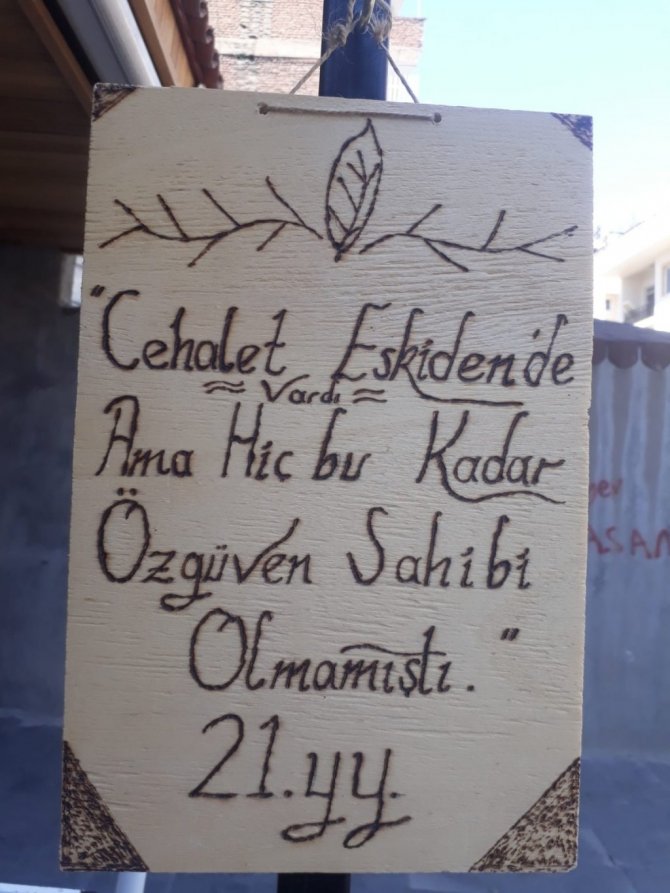 "Cehalet Eskiden'de
≈ Vardı ≈
Ama Hiç bu Kadar
Özgüven Sahibi
Olmamıştı."
21.yy.